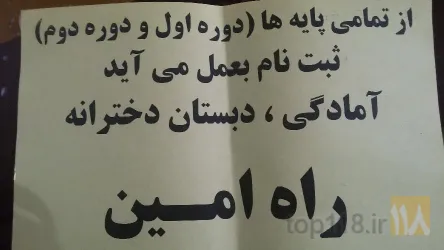 از تمامی پایه ها (دوره اول و دوره دوم)
ثبت نام بعمل می آید
آمادگی ، دبستان دخترانه
راه امین
top118.ir ۱۱۸